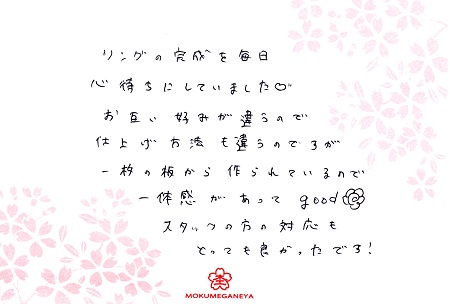 リングの完成を毎日
心待ちにしていました♡
お互い好みが違うので
仕上げ方法も違うのですが
一枚の板から作られているので
一体感があって good
スタッフの方の対応も
とっても良かったです！
MOKUMEGANEYA